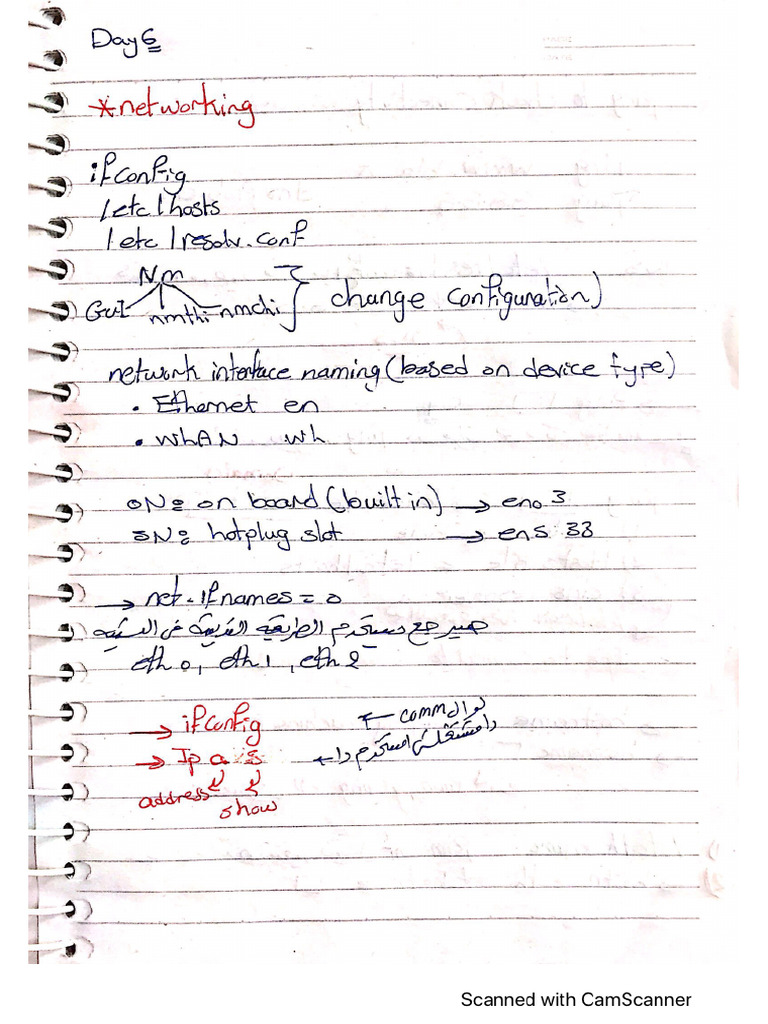 Day 6
*networking
ifconfig
/etc/hosts
/etc/resolv.conf
Nm
GUI nmthi nmchi } change configuration)
network interface naming (based on device type)
• Ethernet en
• WhAN wh
oN: on board (built in) → eno3
sN: hotplug slot → ens 33
→ net.ifnames = 0
هيرجع يستخدم الطريقة القديمة في التسمية
eth0, eth1, eth2
→ ifconfig
لو ال comm ←
→ Ip a s
دا مشتغلش استخدم دا ←
address
show
Scanned with CamScanner